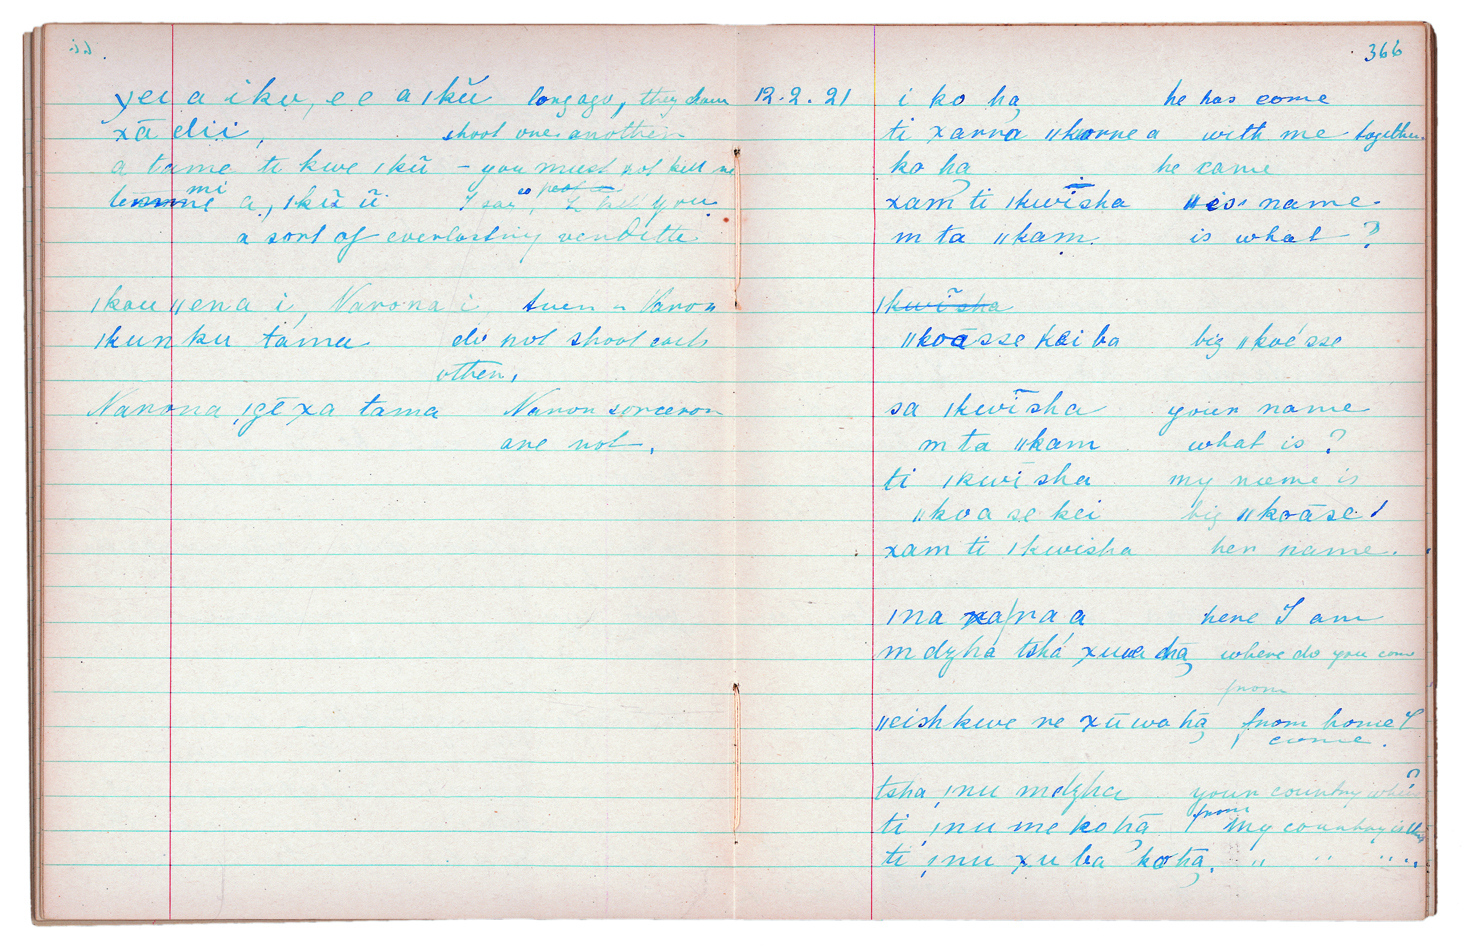 yei a iku, e e a ıkŭ long ago, they
xā dii, shoot one another
a tame ti kwe ıkŭ – you must not kill me
mi a, ıkŭ ŭ I say, you
a sort of everlasting vendetta
ıkau ıı ena i, Narona i,
ıkun ku tama do not shoot each
other,
Narona ıgē xa tama Naron sorceror
are not.
366
12.2.21 i ko ha he has come
ti xarra ıı korre a with me together.
ko ha he came
xam ti ıkwīsha name
m ta ıı kam. is what ?
ıkwīsha
ıı koāsse kei ba big ıı koésse
sa ıkwīsha your name
m ta ıı kam what is ?
ti ıkwī sha my name is
ıı koa se kei big ıı koāse !
xam ti ıkwisha her name.
ına xa/ra a here I am
m dzha tshá xuwa hą where do you come
from
ıı eish kwe re xū wa hą from home I
come.
tsha ınu m dzha your country where ?
from
ti ınu me ko hą my country is this
ti ınu xu ba ko hą. " " " "